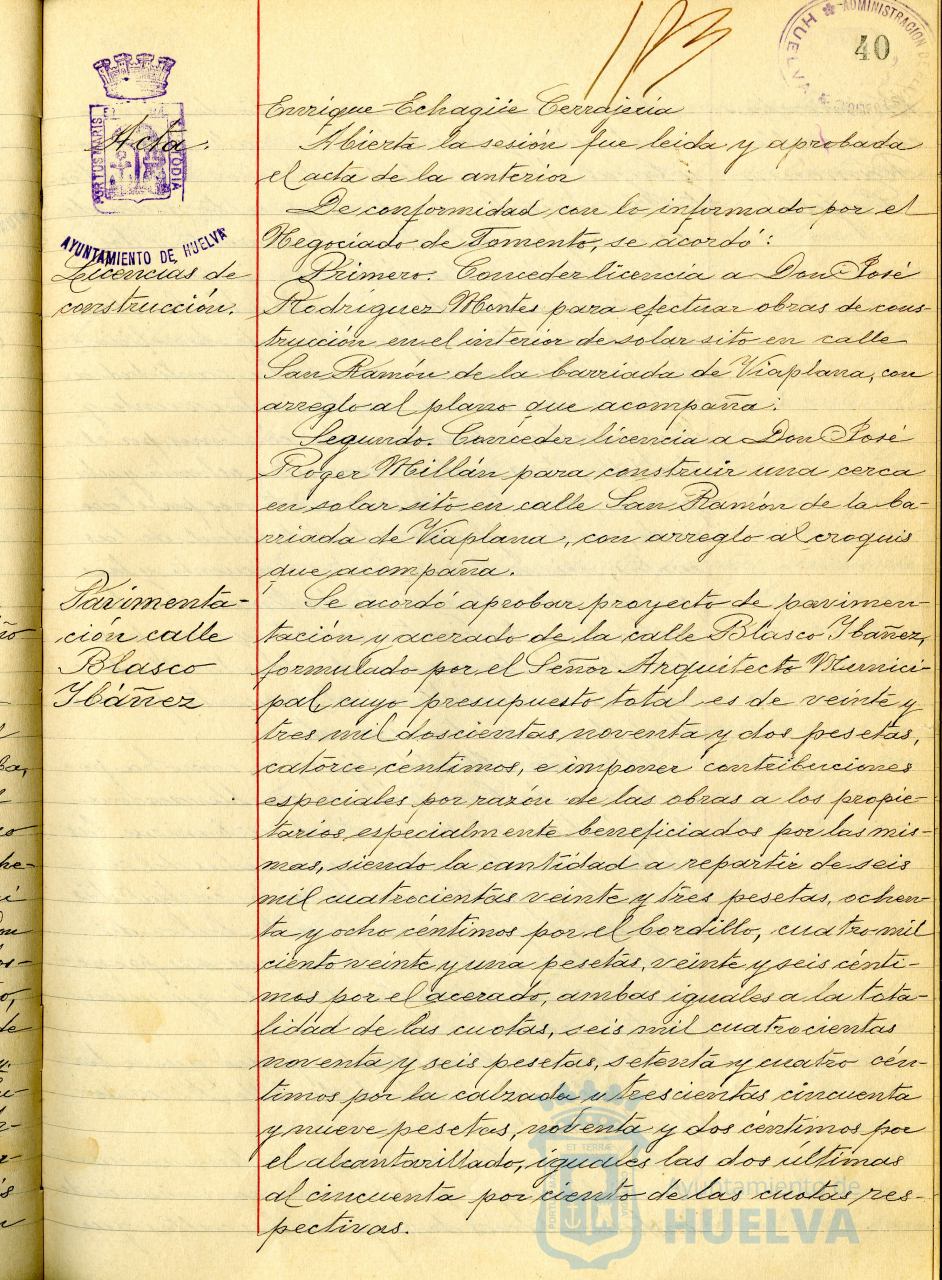 183
40
HUELVA ADMINISTRACION DE
Enrique Echagüe Cerrajería
Acta.
PORTUS MARIS
CUSTODIA
Abierta la sesión fue leida y aprobada
el acta de la anterior
De conformidad con lo informado por el
Negociado de Fomento, se acordó:
AYUNTAMIENTO DE HUELVA
Licencias de
construcción.
Primero. Conceder licencia a Don José
Rodríguez Montes para efectuar obras de cons-
trucción en el interior de solar sito en calle
San Ramón de la barriada de Viaplana, con
arreglo al plano que acompaña.
Segundo. Conceder licencia a Don José
Roger Millán para construir una cerca
en solar sito en calle San Ramón de la ba-
rriada de Viaplana, con arreglo al croquis
que acompaña.
Pavimenta-
ción calle
Blasco
Ibáñez
Se acordó aprobar proyecto de pavimen-
tación y acerado de la calle Blasco Ibáñez,
formulado por el Señor Arquitecto Munici-
pal cuyo presupuesto total es de veinte y
tres mil doscientas noventa y dos pesetas,
catorce céntimos, e imponer contribuciones
especiales por razón de las obras a los propie-
tarios especialmente beneficiados por las mis-
mas, siendo la cantidad a repartir de seis
mil cuatrocientas veinte y tres pesetas, ochen-
ta y ocho céntimos por el bordillo, cuatro mil
ciento veinte y una pesetas, veinte y seis cénti-
mos por el acerado, ambas iguales a la tota-
lidad de las cuotas, seis mil cuatrocientas
noventa y seis pesetas, setenta y cuatro cén-
timos por la calzada y trescientas cincuenta
y nueve pesetas, noventa y dos céntimos por
el alcantarillado, iguales las dos últimas
al cincuenta por ciento de las cuotas res-
pectivas.
Ayuntamiento de
HUELVA